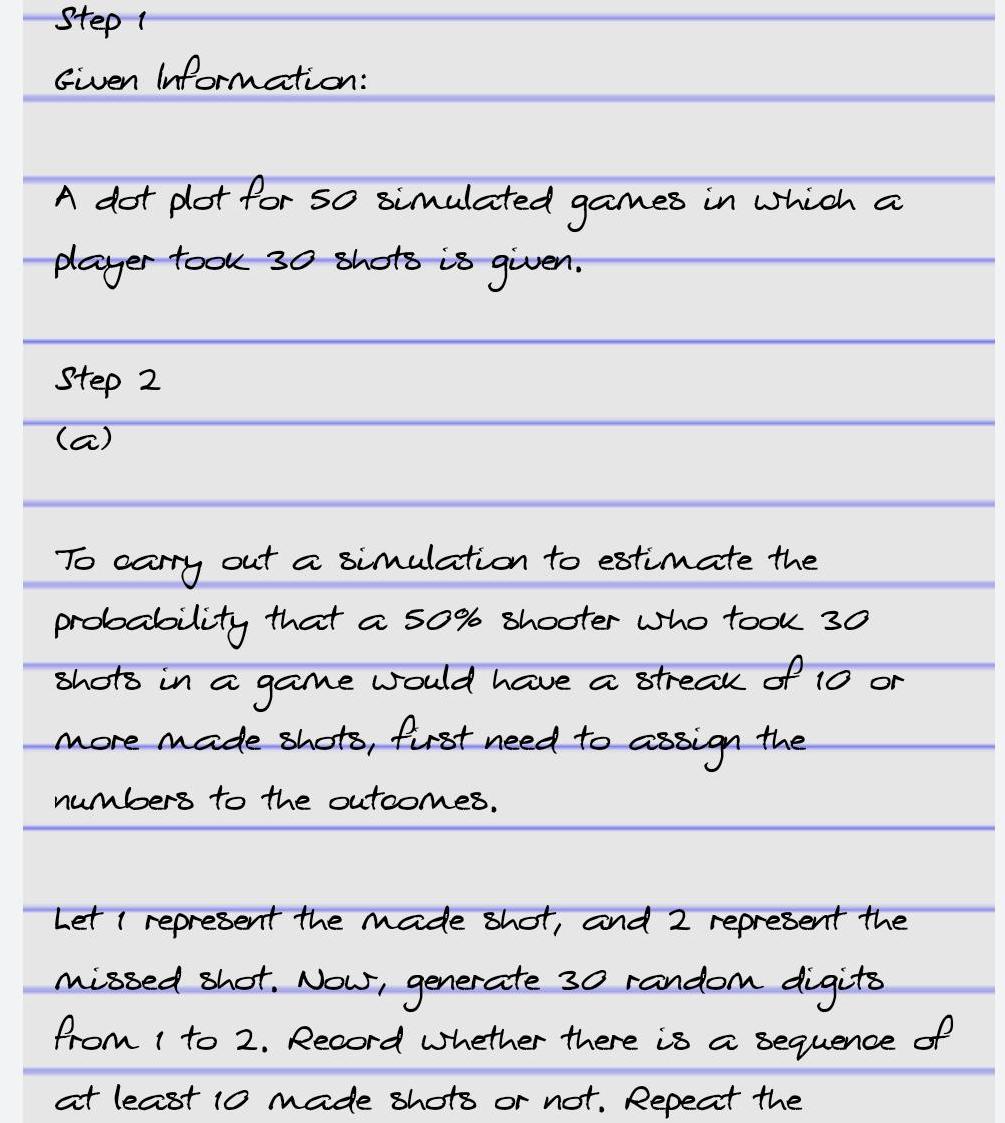 Step 1
Given Information:
A dot plot for 50 simulated games in which a
player took 30 shots is given.
Step 2
(a)
To carry out a simulation to estimate the
probability that a 50% shooter who took 30
shots in a game would have a streak of 10 or
more made shots, first need to assign the
numbers to the outcomes.
Let 1 represent the made shot, and 2 represent the
missed shot. Now, generate 30 random digits
from 1 to 2. Record whether there is a sequence of
at least 10 made shots or not. Repeat the